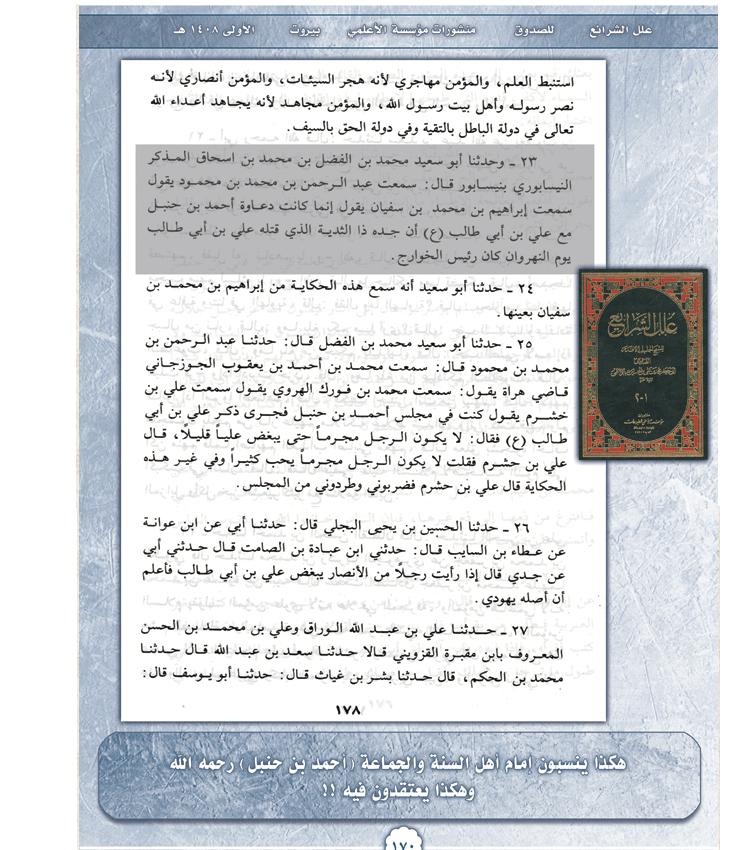 علل الشرائع للصدوق منشورات مؤسسة الأعلمي بيروت الأولى ١٤٠٨ هـ
استنبط العلم، والمؤمن مهاجري لأنه هجر السيئات، والمؤمن أنصاري لأنه
نصر رسوله وأهل بيت رسول الله، والمؤمن مجاهد لأنه يجاهد أعداء الله
تعالى في دولة الباطل بالتقية وفي دولة الحق بالسيف.
٢٣ ـ وحدثنا أبو سعيد محمد بن الفضل بن محمد بن اسحاق المذكر
النيسابوري بنيسابور قال: سمعت عبد الرحمن بن محمد بن محمود يقول
سمعت إبراهيم بن محمد بن سفيان يقول إنما كانت دعاوة أحمد بن حنبل
مع علي بن أبي طالب (ع) أن جده ذا الثدية الذي قتله علي بن أبي طالب
يوم النهروان كان رئيس الخوارج.
٢٤ ـ حدثنا أبو سعيد أنه سمع هذه الحكاية من إبراهيم بن محمد بن
سفيان بعينها.
٢٥ ـ حدثنا أبو سعيد محمد بن الفضل قال: حدثنا عبد الرحمن بن
محمد بن محمود قال: سمعت محمد بن أحمد بن يعقوب الجوزجاني
قاضي هراة يقول: سمعت محمد بن فورك الهروي يقول سمعت علي بن
خشرم يقول كنت في مجلس أحمد بن حنبل فجرى ذكر علي بن أبي
طالب (ع) فقال: لا يكون الرجل مجرماً حتى يبغض علياً قليلاً، قال
علي بن حشرم فقلت لا يكون الرجل مجرماً يحب كثيراً وفي غير هذه
الحكاية قال علي بن حشرم فضربوني وطردوني من المجلس.
٢٦ ـ حدثنا الحسين بن يحيى البجلي قال: حدثنا أبي عن ابن عوانة
عن عطاء بن السايب قال: حدثني ابن عبادة بن الصامت قال حدثني أبي
عن جدي قال إذا رأيت رجلاً من الأنصار يبغض علي بن أبي طالب فأعلم
أن أصله يهودي.
٢٧ ـ حدثنا علي بن عبد الله الوراق وعلي بن محمد بن الحسن
المعروف بابن مقبرة القزويني قالا حدثنا سعد بن عبد الله قال حدثنا
محمد بن الحكم، قال حدثنا بشر بن غياث قال: حدثنا أبو يوسف قال:
١٧٨
علل الشرائع
١-٢
هكذا ينسبون إمام أهل السنة والجماعة (أحمد بن حنبل) رحمه الله
وهكذا يعتقدون فيه !!
١٧٠